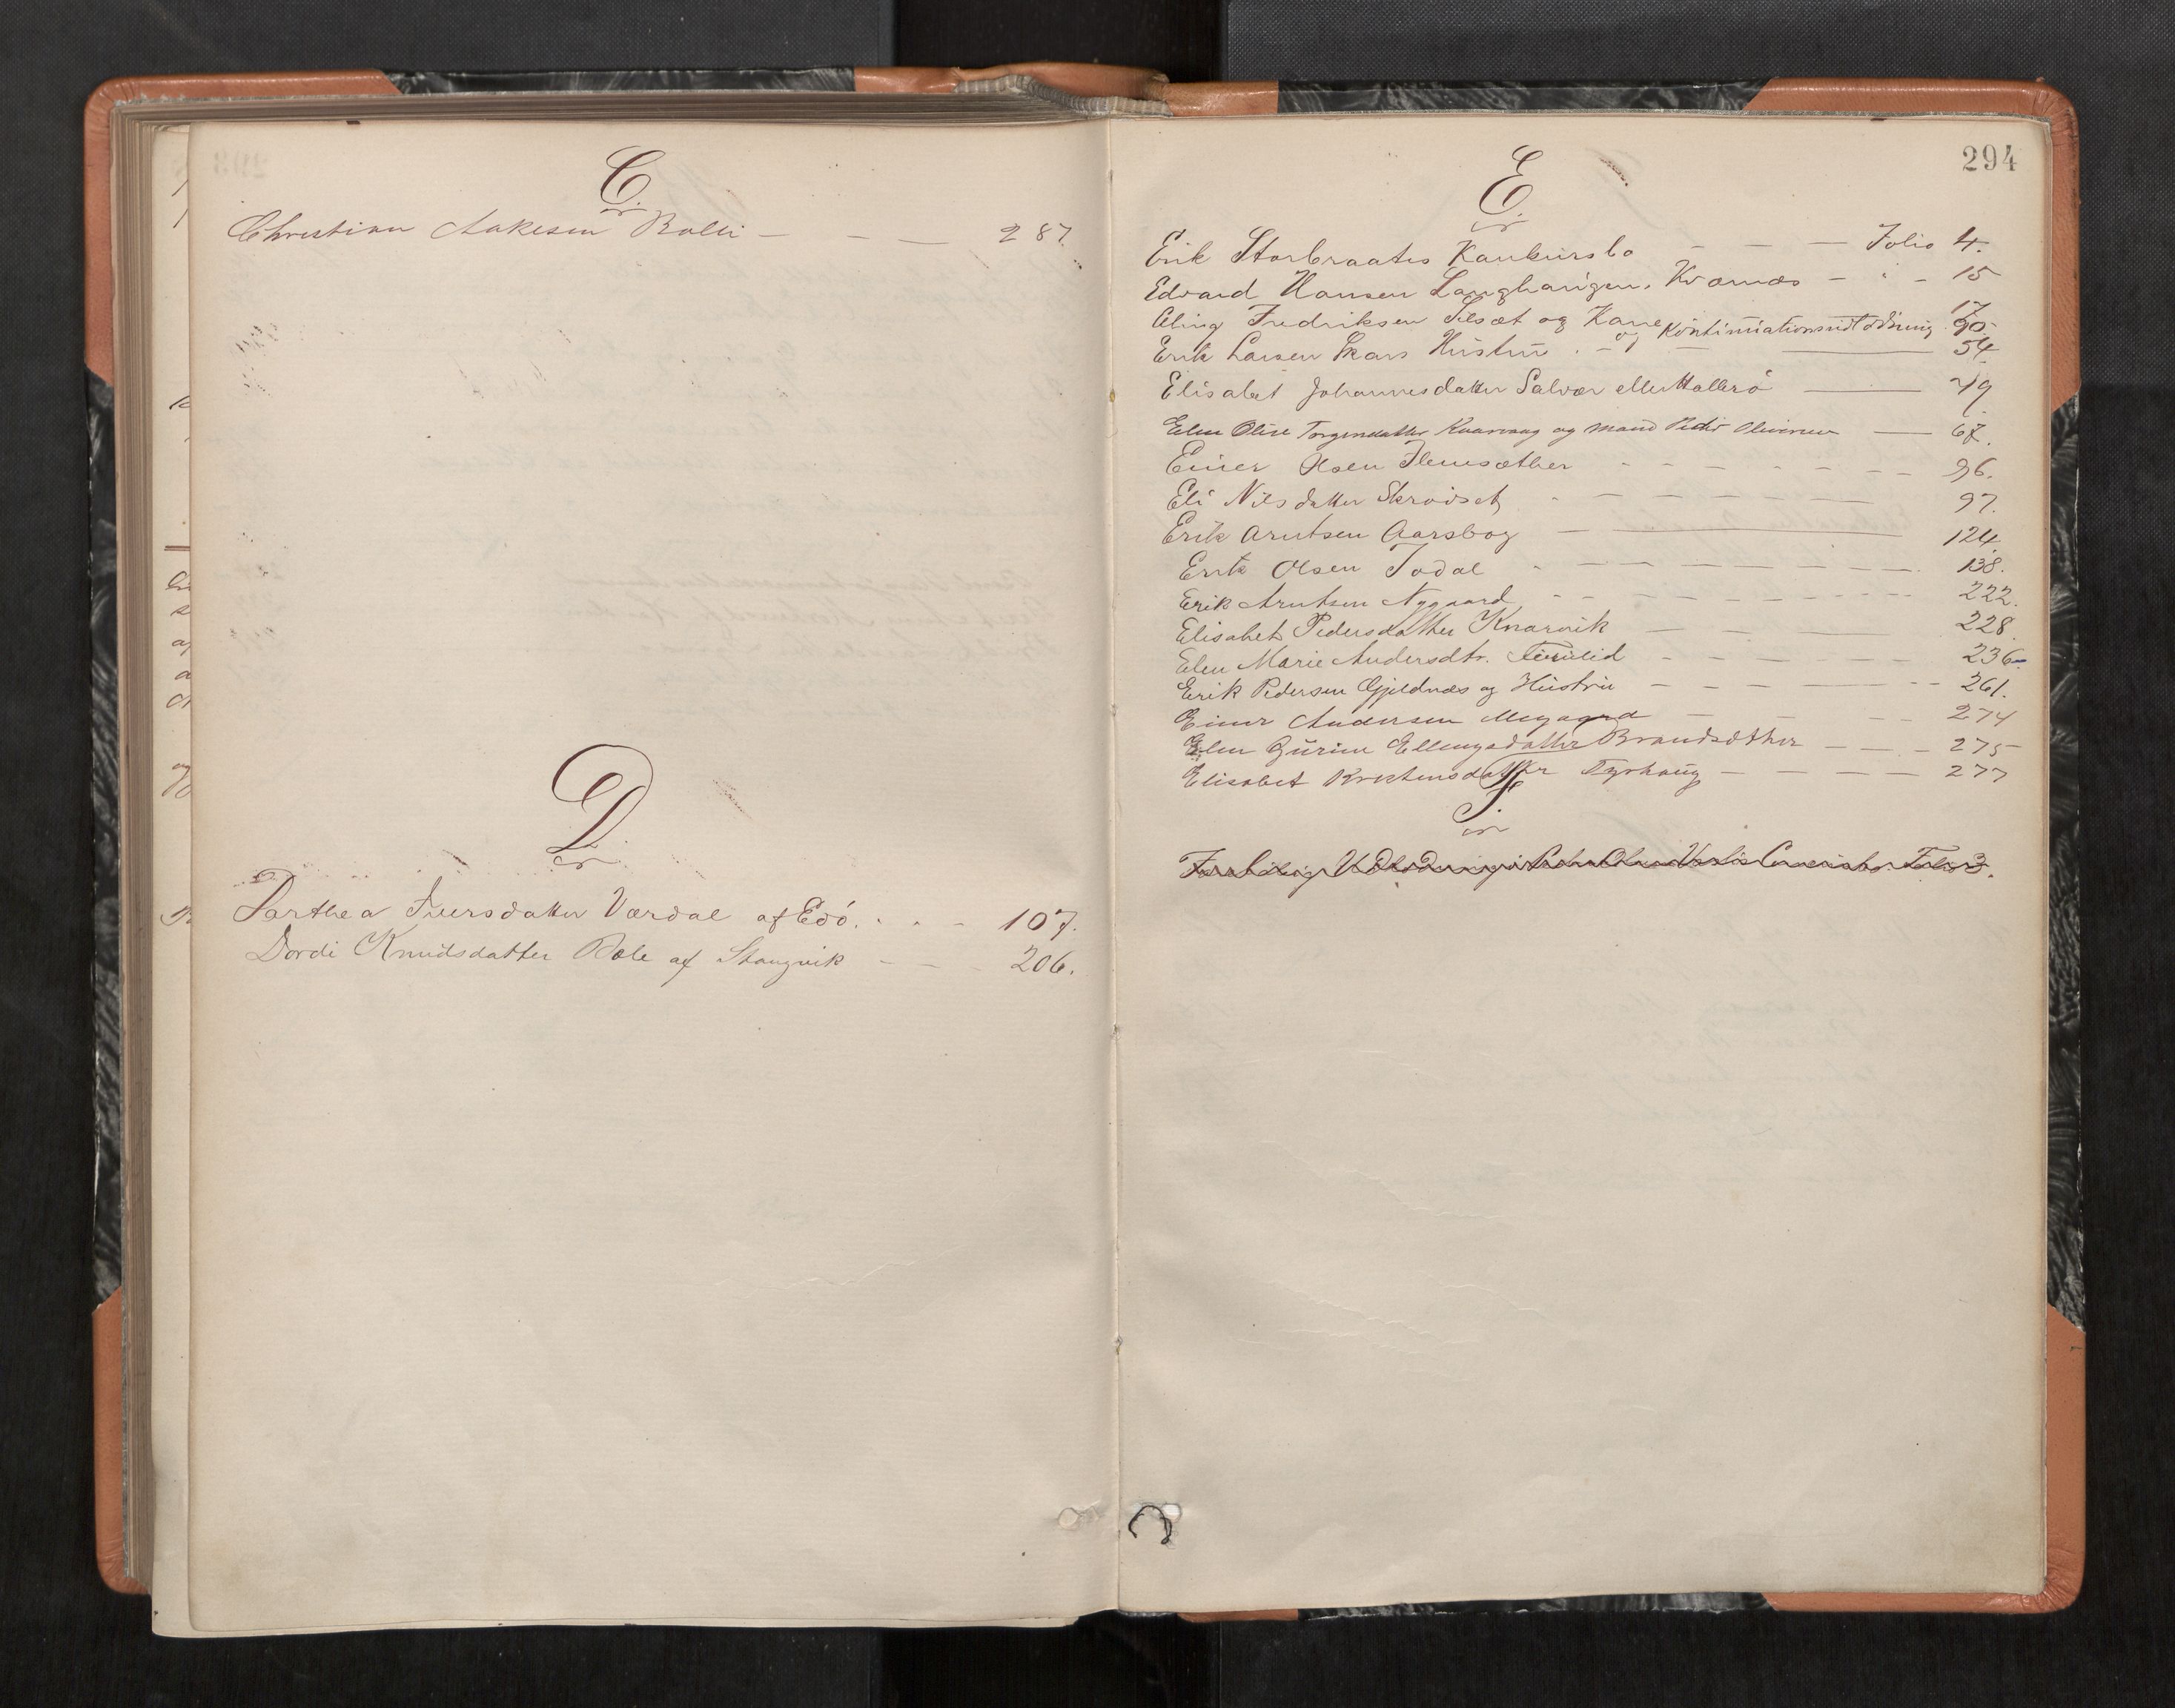 C.
Christian Aakesen Bolli - - - 287.
D.
Dorthea Iversdatter Værdal af Edö. - - - 107.
Dordi Knudsdatter Bole af Stangvik - - - 206.
294
E.
Erik Storbraates Konkursbo - - - Folio 4.
Edvard Hansen Langhaugen, Kvernæs - - - 15
Eling Fredriksen Silsæt og Kone og Kontinuationsudlodning 17. 90.
Erik Larsen Skars Hustru - - 54.
Elisabet Johannesdatter Salvær eller Hallerö - 49
Elen Oline Torgersdatter Kaarvaag og mand Peder Oliversen - 67.
Einer Olsen Flemsæther - - - 96.
Eli Nilsdatter Skröiset - - - 97.
Erik Arntsen Aarsbog - 124
Erik Olsen Todal - - - 138.
Erik Arntsen Nygaard - - - 222.
Elisabet Pedersdatter Knarvik - - - 228.
Elen Marie Andersdtr. - - - 236
Erik Pedersen Gjeldnæs og Hustru - - - 261.
Einer Andersen - - - 274
Elen Gurine Ellingsdatter Brandsæther - - - 275
Elisabet Kristensdatter Tyrhaug - - - 277
F.
Udlodning i Folio 3.